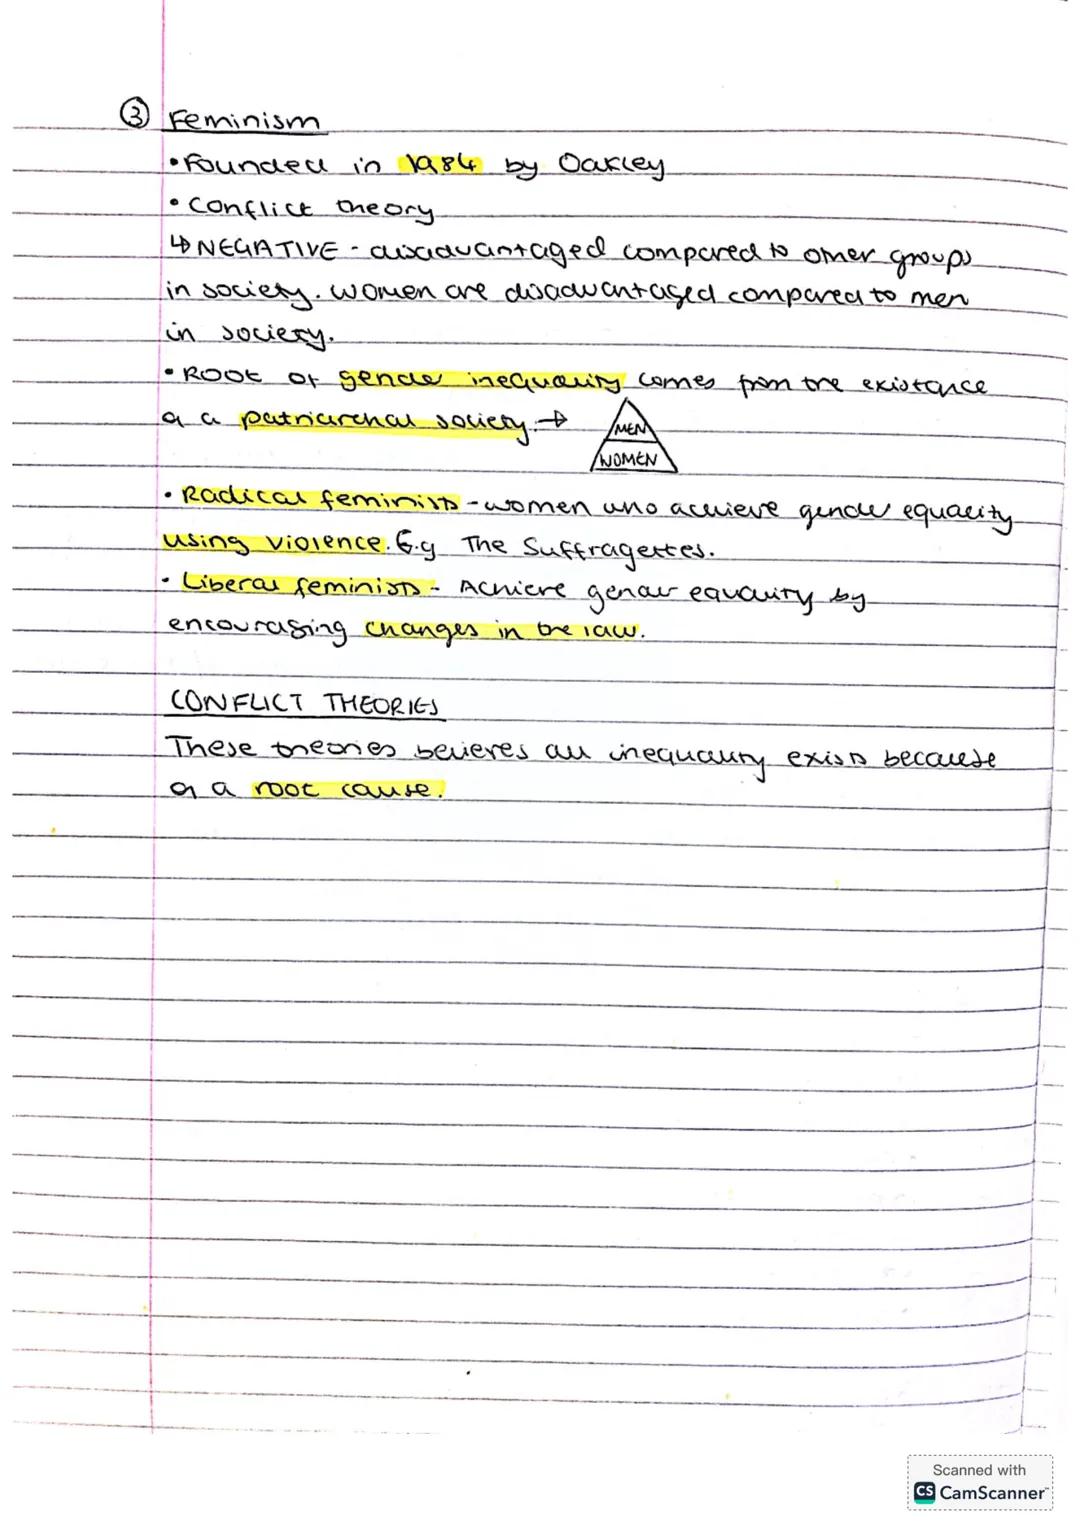 ③ Feminism
• Founded in 1984 by Oakley
• Conflict theory
↳ NEGATIVE - disadvantaged compared to other groups
in society. Women are disadvantaged compared to men
in society.
• ROOT of gender inequality comes from the existance
of a patriarchal society. →
MEN
WOMEN
• Radical feminists - women who achieve gender equality
using violence. E.g The Suffragettes.
• Liberal feminists - Achieve gender equality by
encouraging changes in the law.
CONFLICT THEORIES
These theories believes all inequality exists because
of a root cause.
Scanned with
CS CamScanner